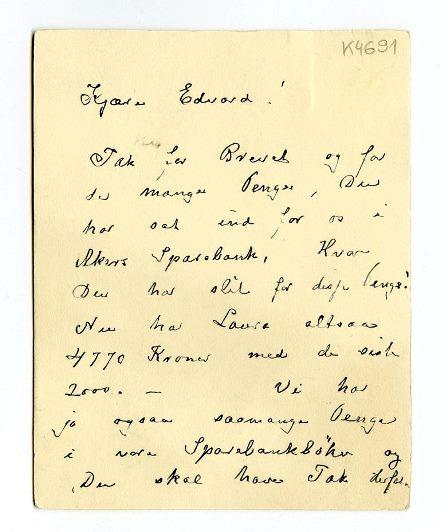 K4691
Kjære Edvard!
Tak for Brevet og for
de mange Penge, Du
har sat ind for os i
Akers Sparebank, Hvor
Du har slit for disse Penge!
Nu har Laura altsaa
4770 Kroner med de siste
2000. —  Vi har
jo ogsaa saamange Penge
i vore Sparebankbøker og
Du skal have Tak derfor.